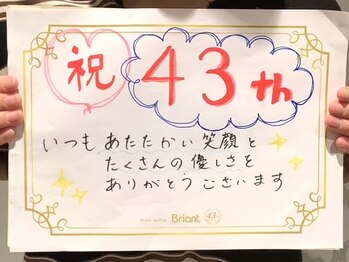 祝 43th
いつも あたたかい 笑顔と
たくさんの 優しさを
ありがとう ございます
Briant 43